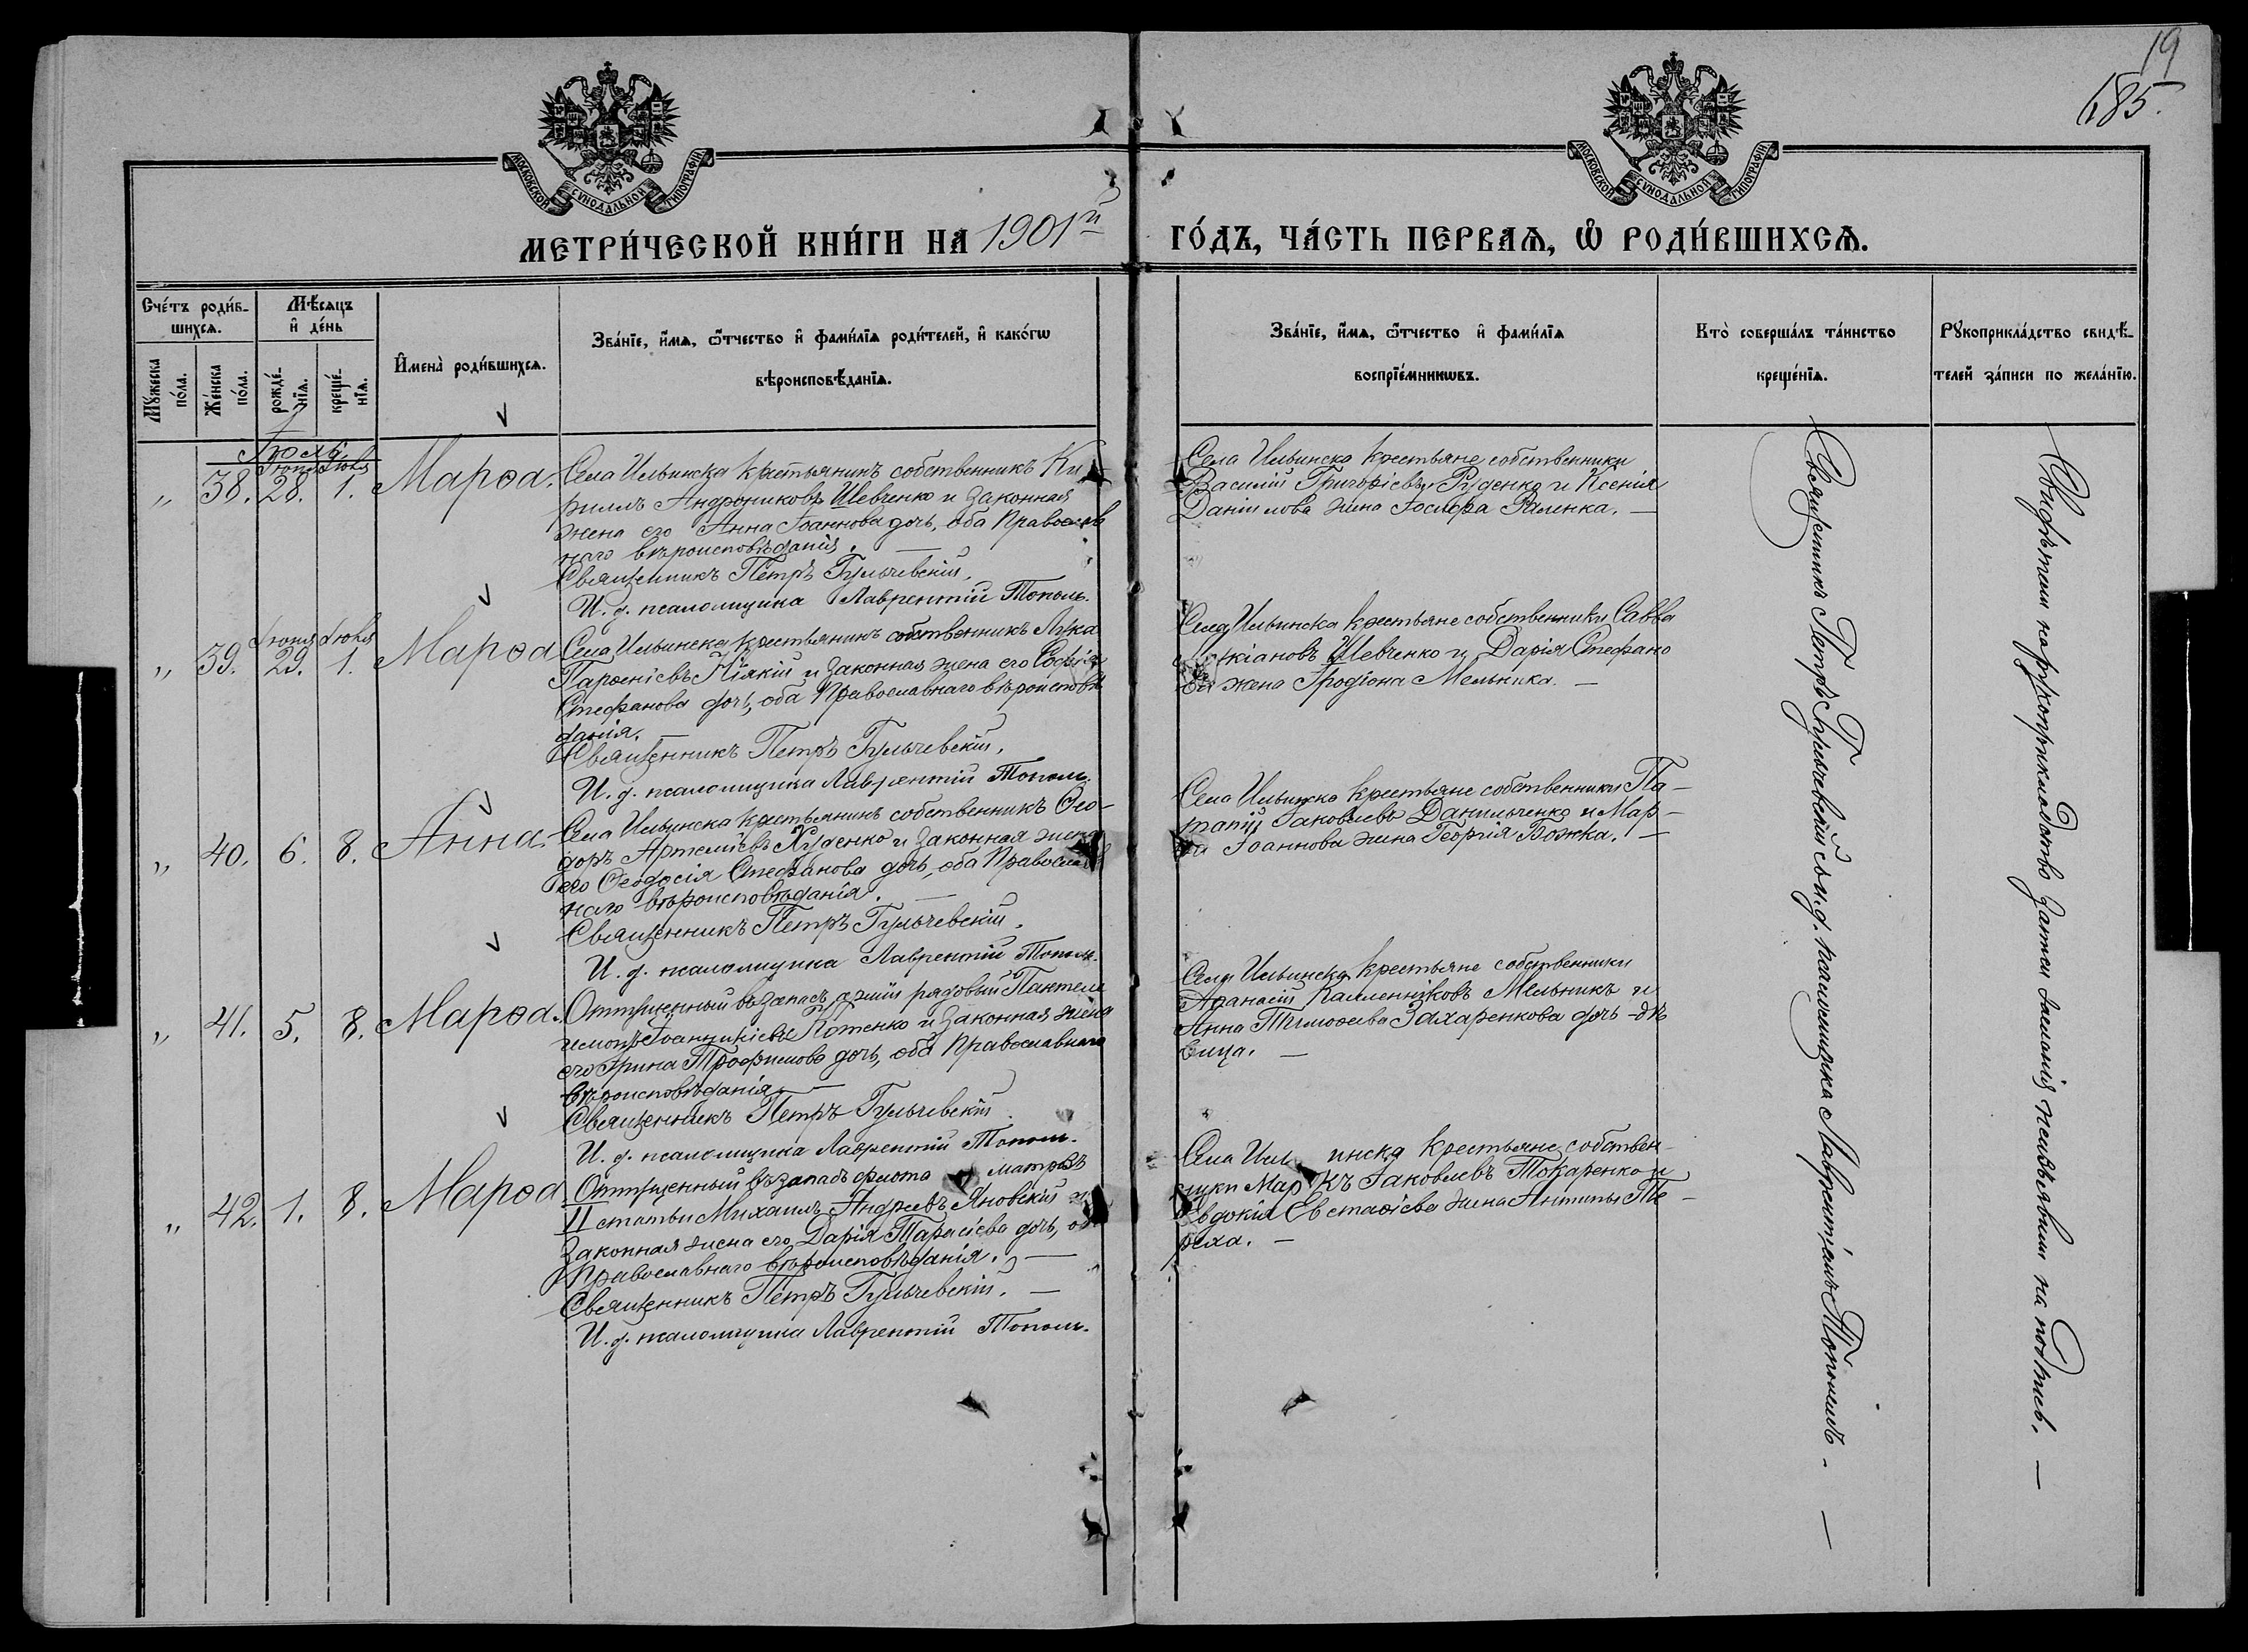 19
185.
МОСКОВСКОЙ СѴНОДАЛЬНОЙ ТИПОГРАФІИ.
МОСКОВСКОЙ СѴНОДАЛЬНОЙ ТИПОГРАФІИ.
МЕТРИ́ЧЕСКОЙ КНИ́ГИ НА 1901й
ГО́ДЪ, ЧА́СТЬ ПЕРВАѦ, Ѡ҆ РОДИ́ВШИХСѦ.
Сче́тъ роди́в-
шихсѧ.
Мꙋ́жеска по́ла.
Же́нска по́ла.
Мѣ́сѧцъ
и҆ де́нь
рожде́-
нїѧ.
креще́-
нїѧ.
И҆мена̀ роди́вшихсѧ.
Зва́нїе, и҆́мѧ, ѻ҆́тчество и҆ фами́лїѧ роди́телей, и҆ како́гѡ
вѣроисповѣ́данїѧ.
Зва́нїе, и҆́мѧ, ѻ҆́тчество и҆ фами́лїѧ
воспрїе́мникѡвъ.
Кто̀ соверша́лъ та́инство
креще́нїѧ.
Рꙋкоприкла́дство свидѣ́-
телей за́писи по жела́нїю.
Іюль.
Іюня Іюля
„ 38. 28. 1. Марѳа.
Села Ильинска крестьянинъ собственникъ Ки-
риллъ Андрониковъ Шевченко и законная
жена его Анна Іоаннова дочь, оба Православ
наго вѣроисповѣданія. —
Священникъ Петръ Гульчевскій.
И. д. псаломщика Лаврентій Тополь.
Села Ильинска крестьяне собственники
Василій Григоріевъ Руденко и Ксенія
Даніилова жена Іосифа —
Іюня Іюля
„ 39. 29. 1. Марѳа
Села Ильинска крестьянинъ собственникъ Лука
Парѳеніевъ Кіякій и законная жена его Софія
Стефанова дочь, оба Православнаго вѣроисповѣ
данія. —
Священникъ Петръ Гульчевскій.
И. д. псаломщика Лаврентій Тополь.
Села Ильинска крестьяне собственники Савва
кіановъ Шевченко и Дарія Стефано
ва жена Иродіона Мельника. —
„ 40. 6. 8. Анна.
Села Ильинска крестьянинъ собственникъ Ѳео-
доръ Артеміевъ Худенко и законная жена
его Ѳеодосія Стефанова дочь, оба Православ
наго вѣроисповѣданія. —
Священникъ Петръ Гульчевскій.
И. д. псаломщика Лаврентій Тополь.
Села Ильинска крестьяне собственники Па-
тапій Іаковлевъ Данильченко и Мар-
ѳа Іоаннова жена Георгія Божка. —
„ 41. 5. 8. Марѳа.
Отпущенный въ запасъ арміи рядовый Пантеле
имонъ Іоанникіевъ Котенко и законная жена
его Ирина Трофимова дочь, оба Православнаго
вѣроисповѣданія. —
Священникъ Петръ Гульчевскій
И. д. псаломщика Лаврентій Тополь.
Села Ильинска крестьяне собственники
Аѳанасій Каллениковъ Мельникъ и
Анна Тимоѳеева Захаренкова дочь - дѣ
вица. —
„ 42. 1. 8. Марѳа
Отпущенный въ запасъ флота матросъ
II статьи Михаилъ Андреевъ Яновскій и
законная жена его Дарія Тарасіева дочь, об
Православнаго вѣроисповѣданія. —
Священникъ Петръ Гульчевскій. —
И. д. псаломщика Лаврентій Тополь.
Села Иль инска крестьяне собствен-
ники Мар къ Іаковлевъ Токаренко и
Евдокія Евстаѳіева жена Антипы Те-
реха. —
Священникъ Петръ Гульчевскій съ и. д. псаломщика Лаврентіемъ Тополемъ. —
Свидѣтели на рукоприкладство записи желанія не изъявили на подпись. —